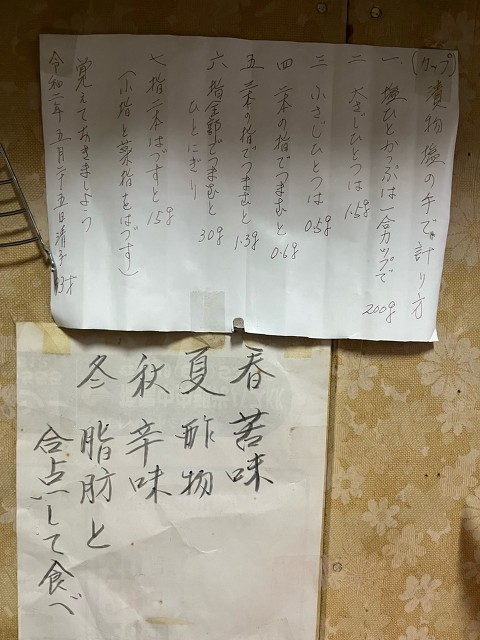 (カップ)
漬物塩の手で計り方
一 塩ひとかっぷは一合カップで 200g
二 大さじひとつは 1.5g
三 小さじひとつは 0.5g
四 二本の指でつまむと 0.6g
五 三本の指でつまむと 1.3g
六 指全部でつまむと 30g
ひとにぎり
七 指二本はづすと 15g
(小指と薬指をはづす)
覚えておきましよう
令和二年 五月二十五日 清子 93才
春 苦味
夏 酢物
秋 辛味
冬 脂肪と
合点して食べ